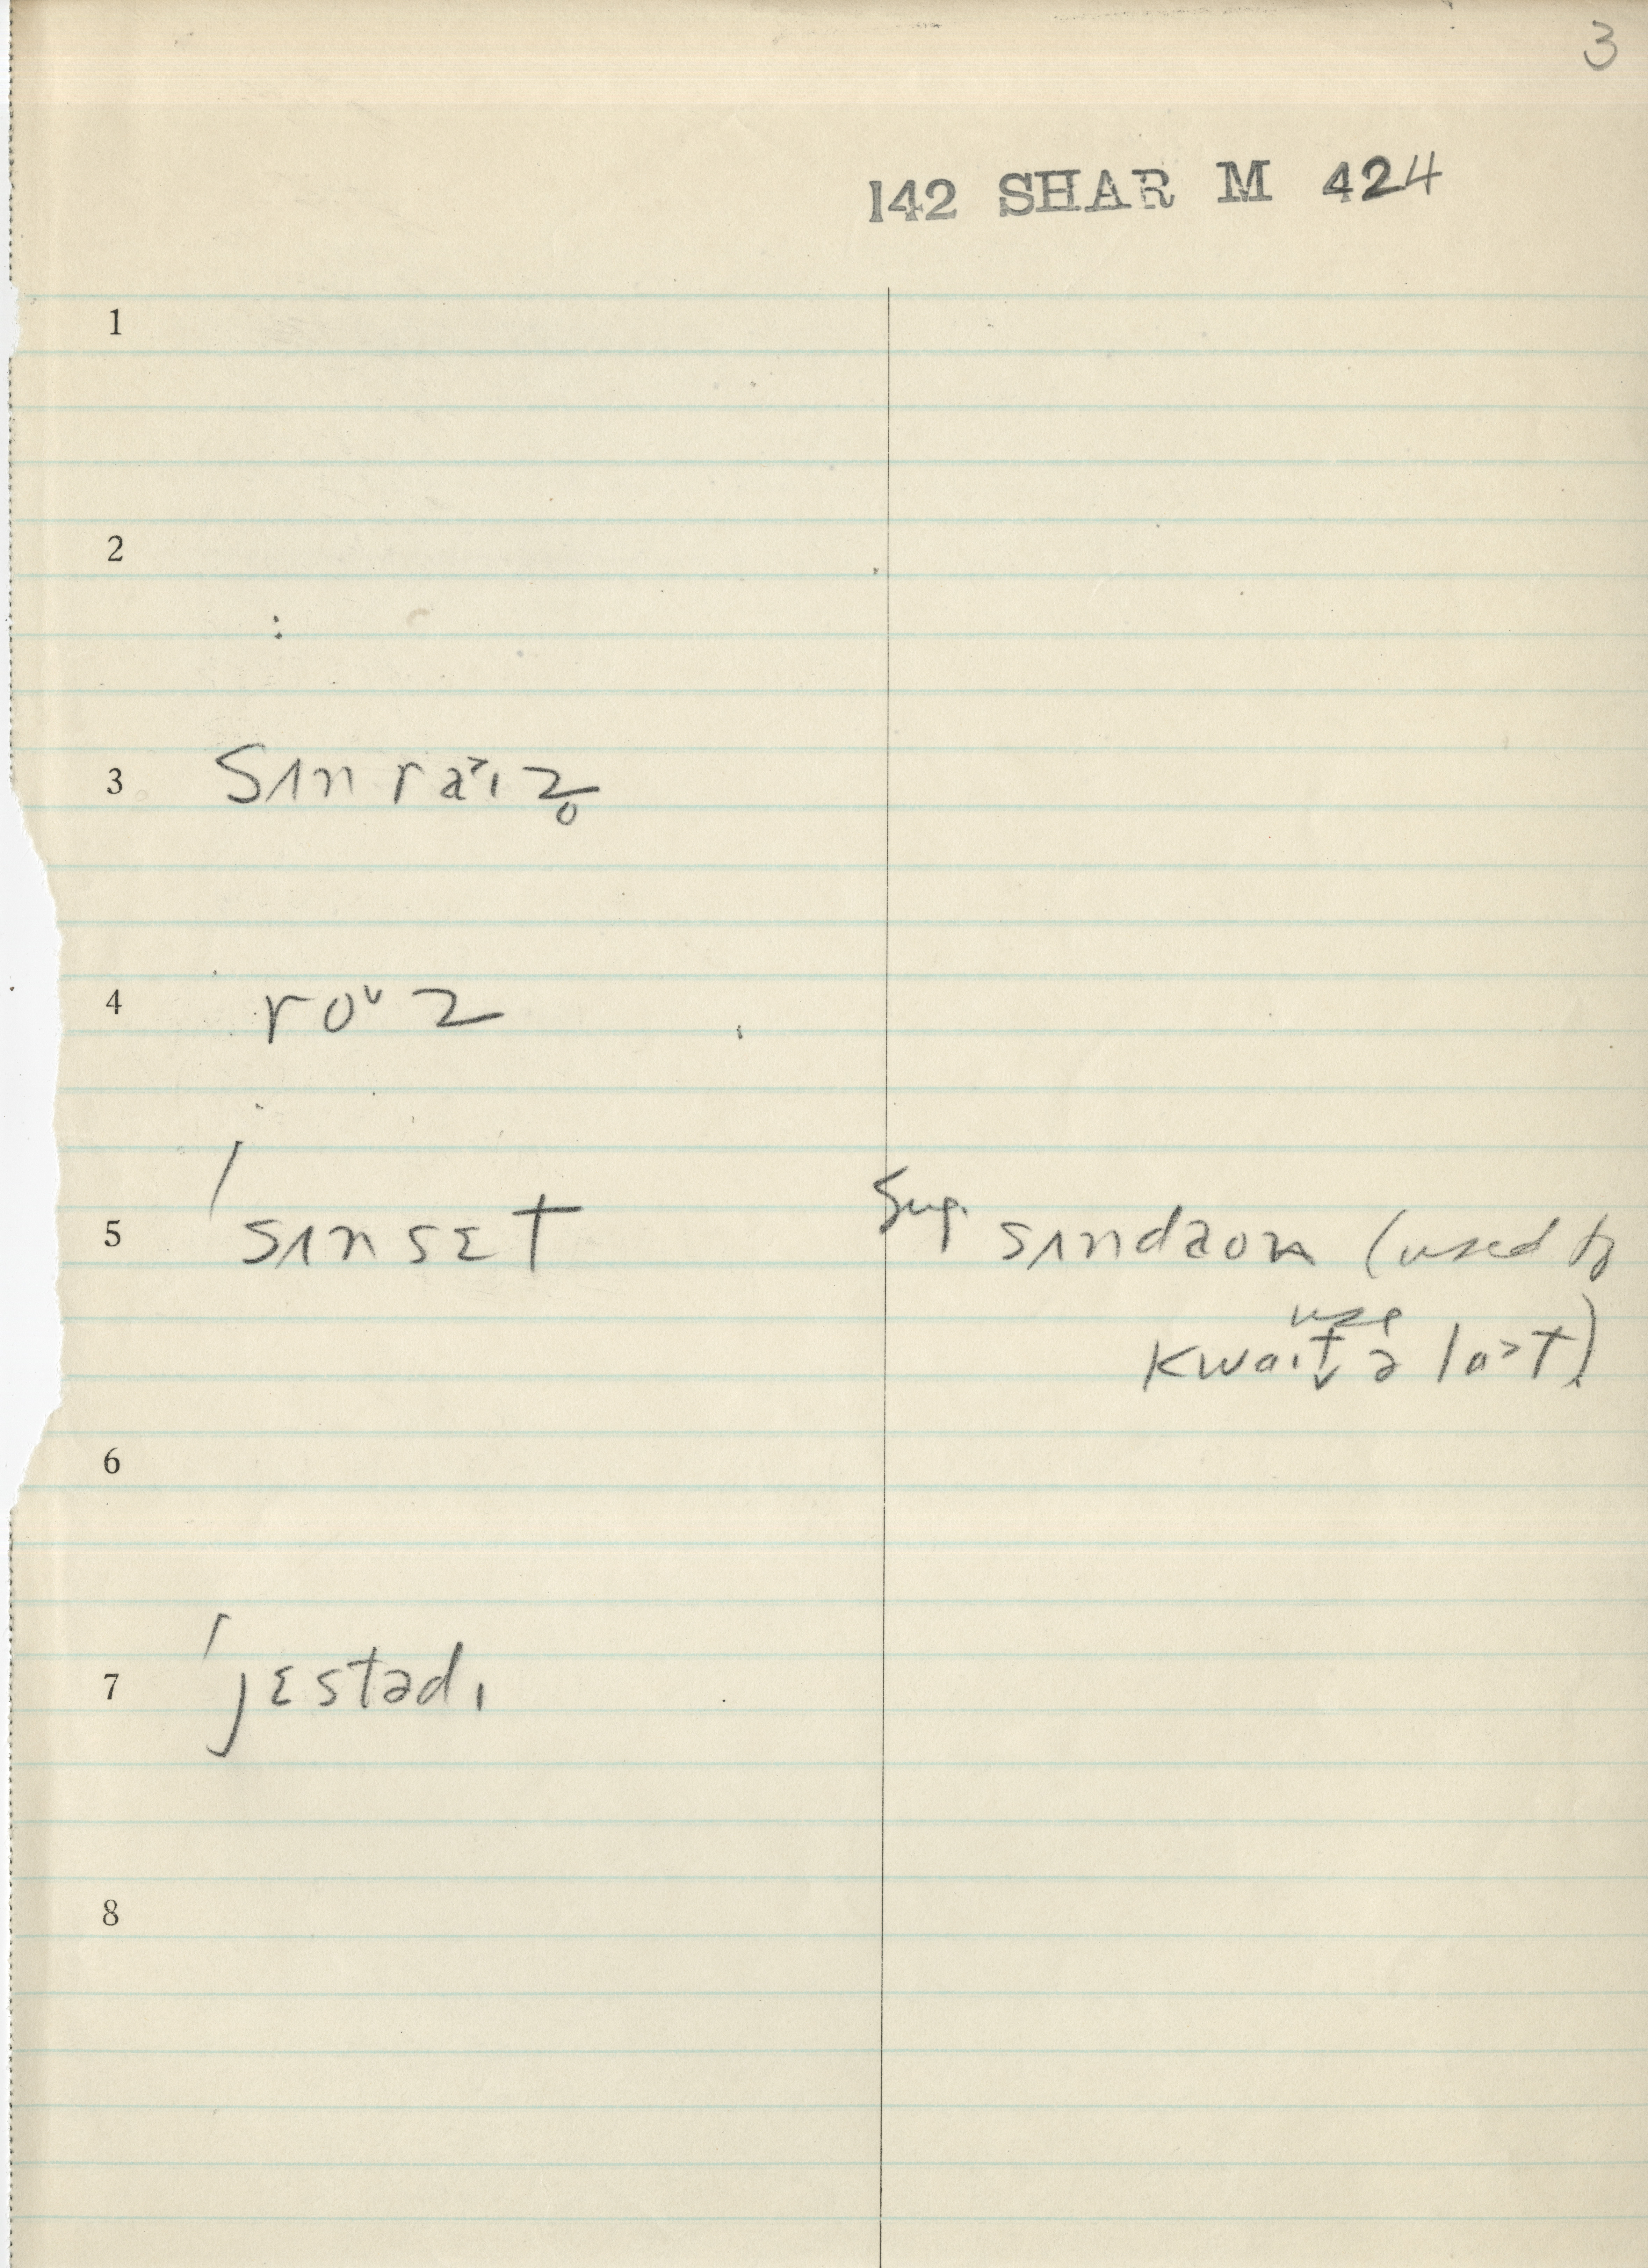 3
142 SHAR M 424
1
2
3 sʌn ra˃ɪz̥
4 roᶷz
5 ˈsʌnsɛt sug. sʌndaon (used to
use
kwaɪt̬ ə la˃t)
6
7 ˈjɛstədɪ
8